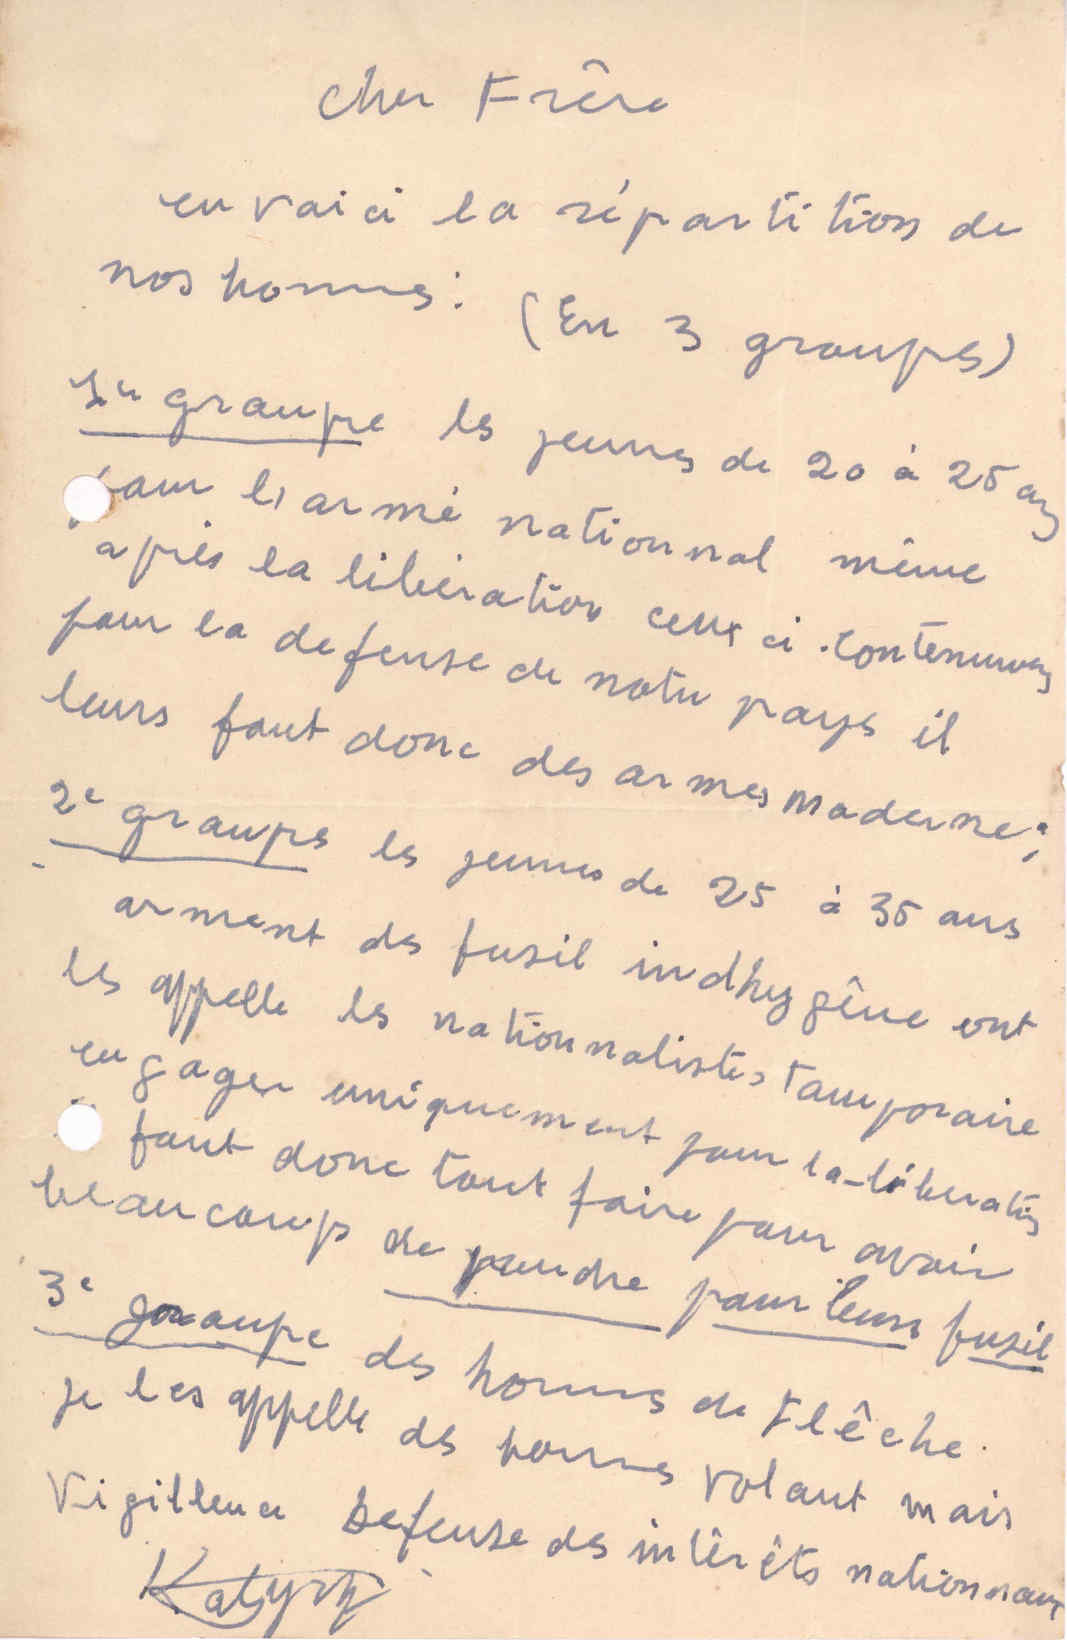 Cher Frêre
en vaici la répartition de
nos homes: (En 3 groups)
1er groupe les jeunes de 20 à 25 ans
pour l'armé nationnal même
après la libération ceux ci contenuven
pour la defense de notre pays il
leurs faut donc des armes moderne;
2e groups les jeunes de 25 à 35 ans
arment des fusil indhygêne ont
les appelle les nationnalistes tamporaire
engager uniquement pour la libération
faut donc tout faire pour avoir
beaucoup de poudre pour leurs fusil
3e groupe des homes de Flêche.
je les appelle des homes volant mais
Vigillence Defense des intêrêts nationnaux